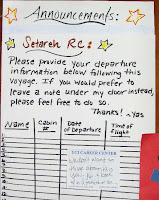 Announcements:
Setareh RC:
Please provide your departure
information below following this
voyage. If you would prefer to
leave a note under my door instead,
please feel free to do so.
Thanks! -Yas
Name Cabin # Date of Departure Time of Flight
UCI CAREER CENTER